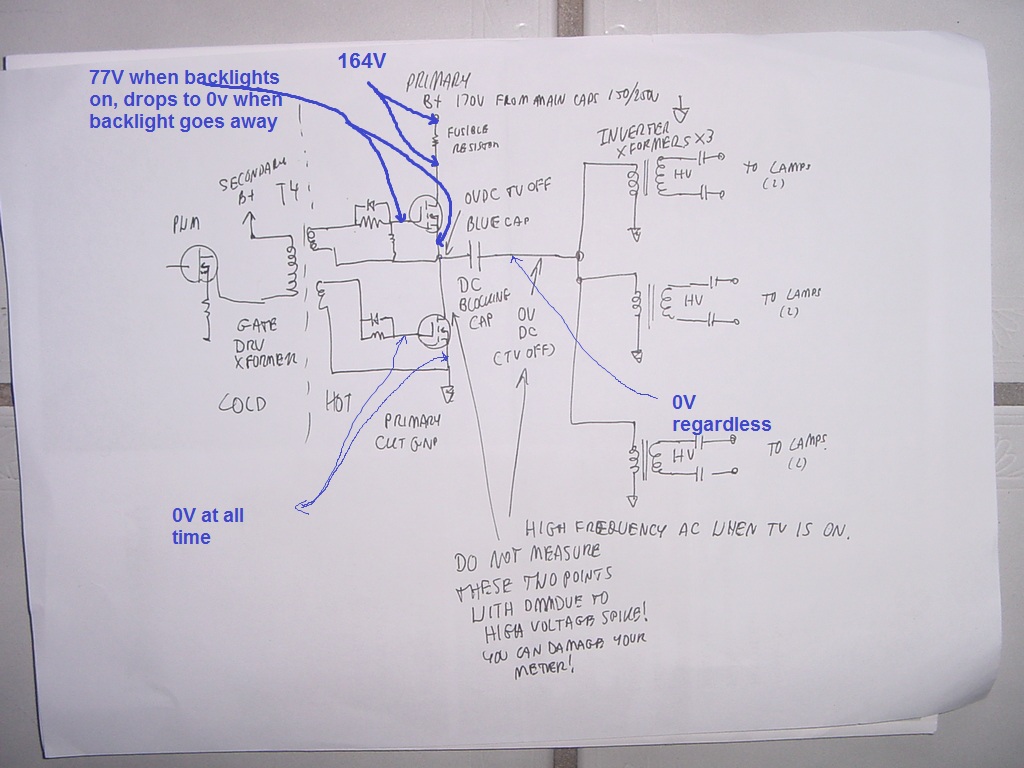 77V when backlights
on, drops to 0v when
backlight goes away
164V
PRIMARY
B+ 170V FROM MAIN CAPS 150/250V
FUSIBLE
RESISTOR
INVERTER
XFORMERS X3
SECONDARY
B+
T4
PWM
0VDC TV OFF
BLUE CAP
HV
TO LAMPS
(2)
DC
BLOCKING
CAP
0V
DC
(TV OFF)
HV
TO LAMPS
(2)
GATE
DRV
XFORMER
COLD
HOT
PRIMARY
CKT GND
0V
regardless
HV
TO LAMPS
(2)
0V at all
time
HIGH FREQUENCY AC WHEN TV IS ON.
DO NOT MEASURE
THESE TWO POINTS
WITH DMM DUE TO
HIGH VOLTAGE SPIKE!
YOU CAN DAMAGE YOUR
METER!